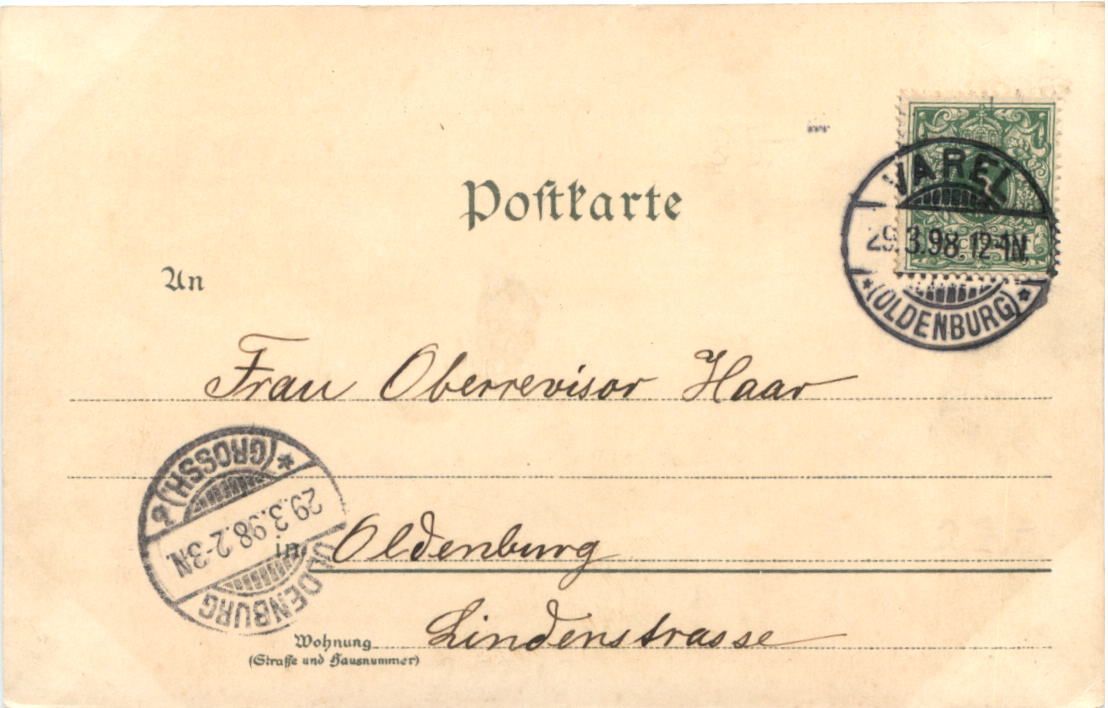 Postkarte
VAREL
29.3.98.12-1N.
*(OLDENBURG)*
An
Frau Oberrevisor Haar
*(GROSSH.)
29.3.98.2-3N.
OLDENBURG
in Oldenburg
Wohnung Lindenstrasse
(Straße und Hausnummer)